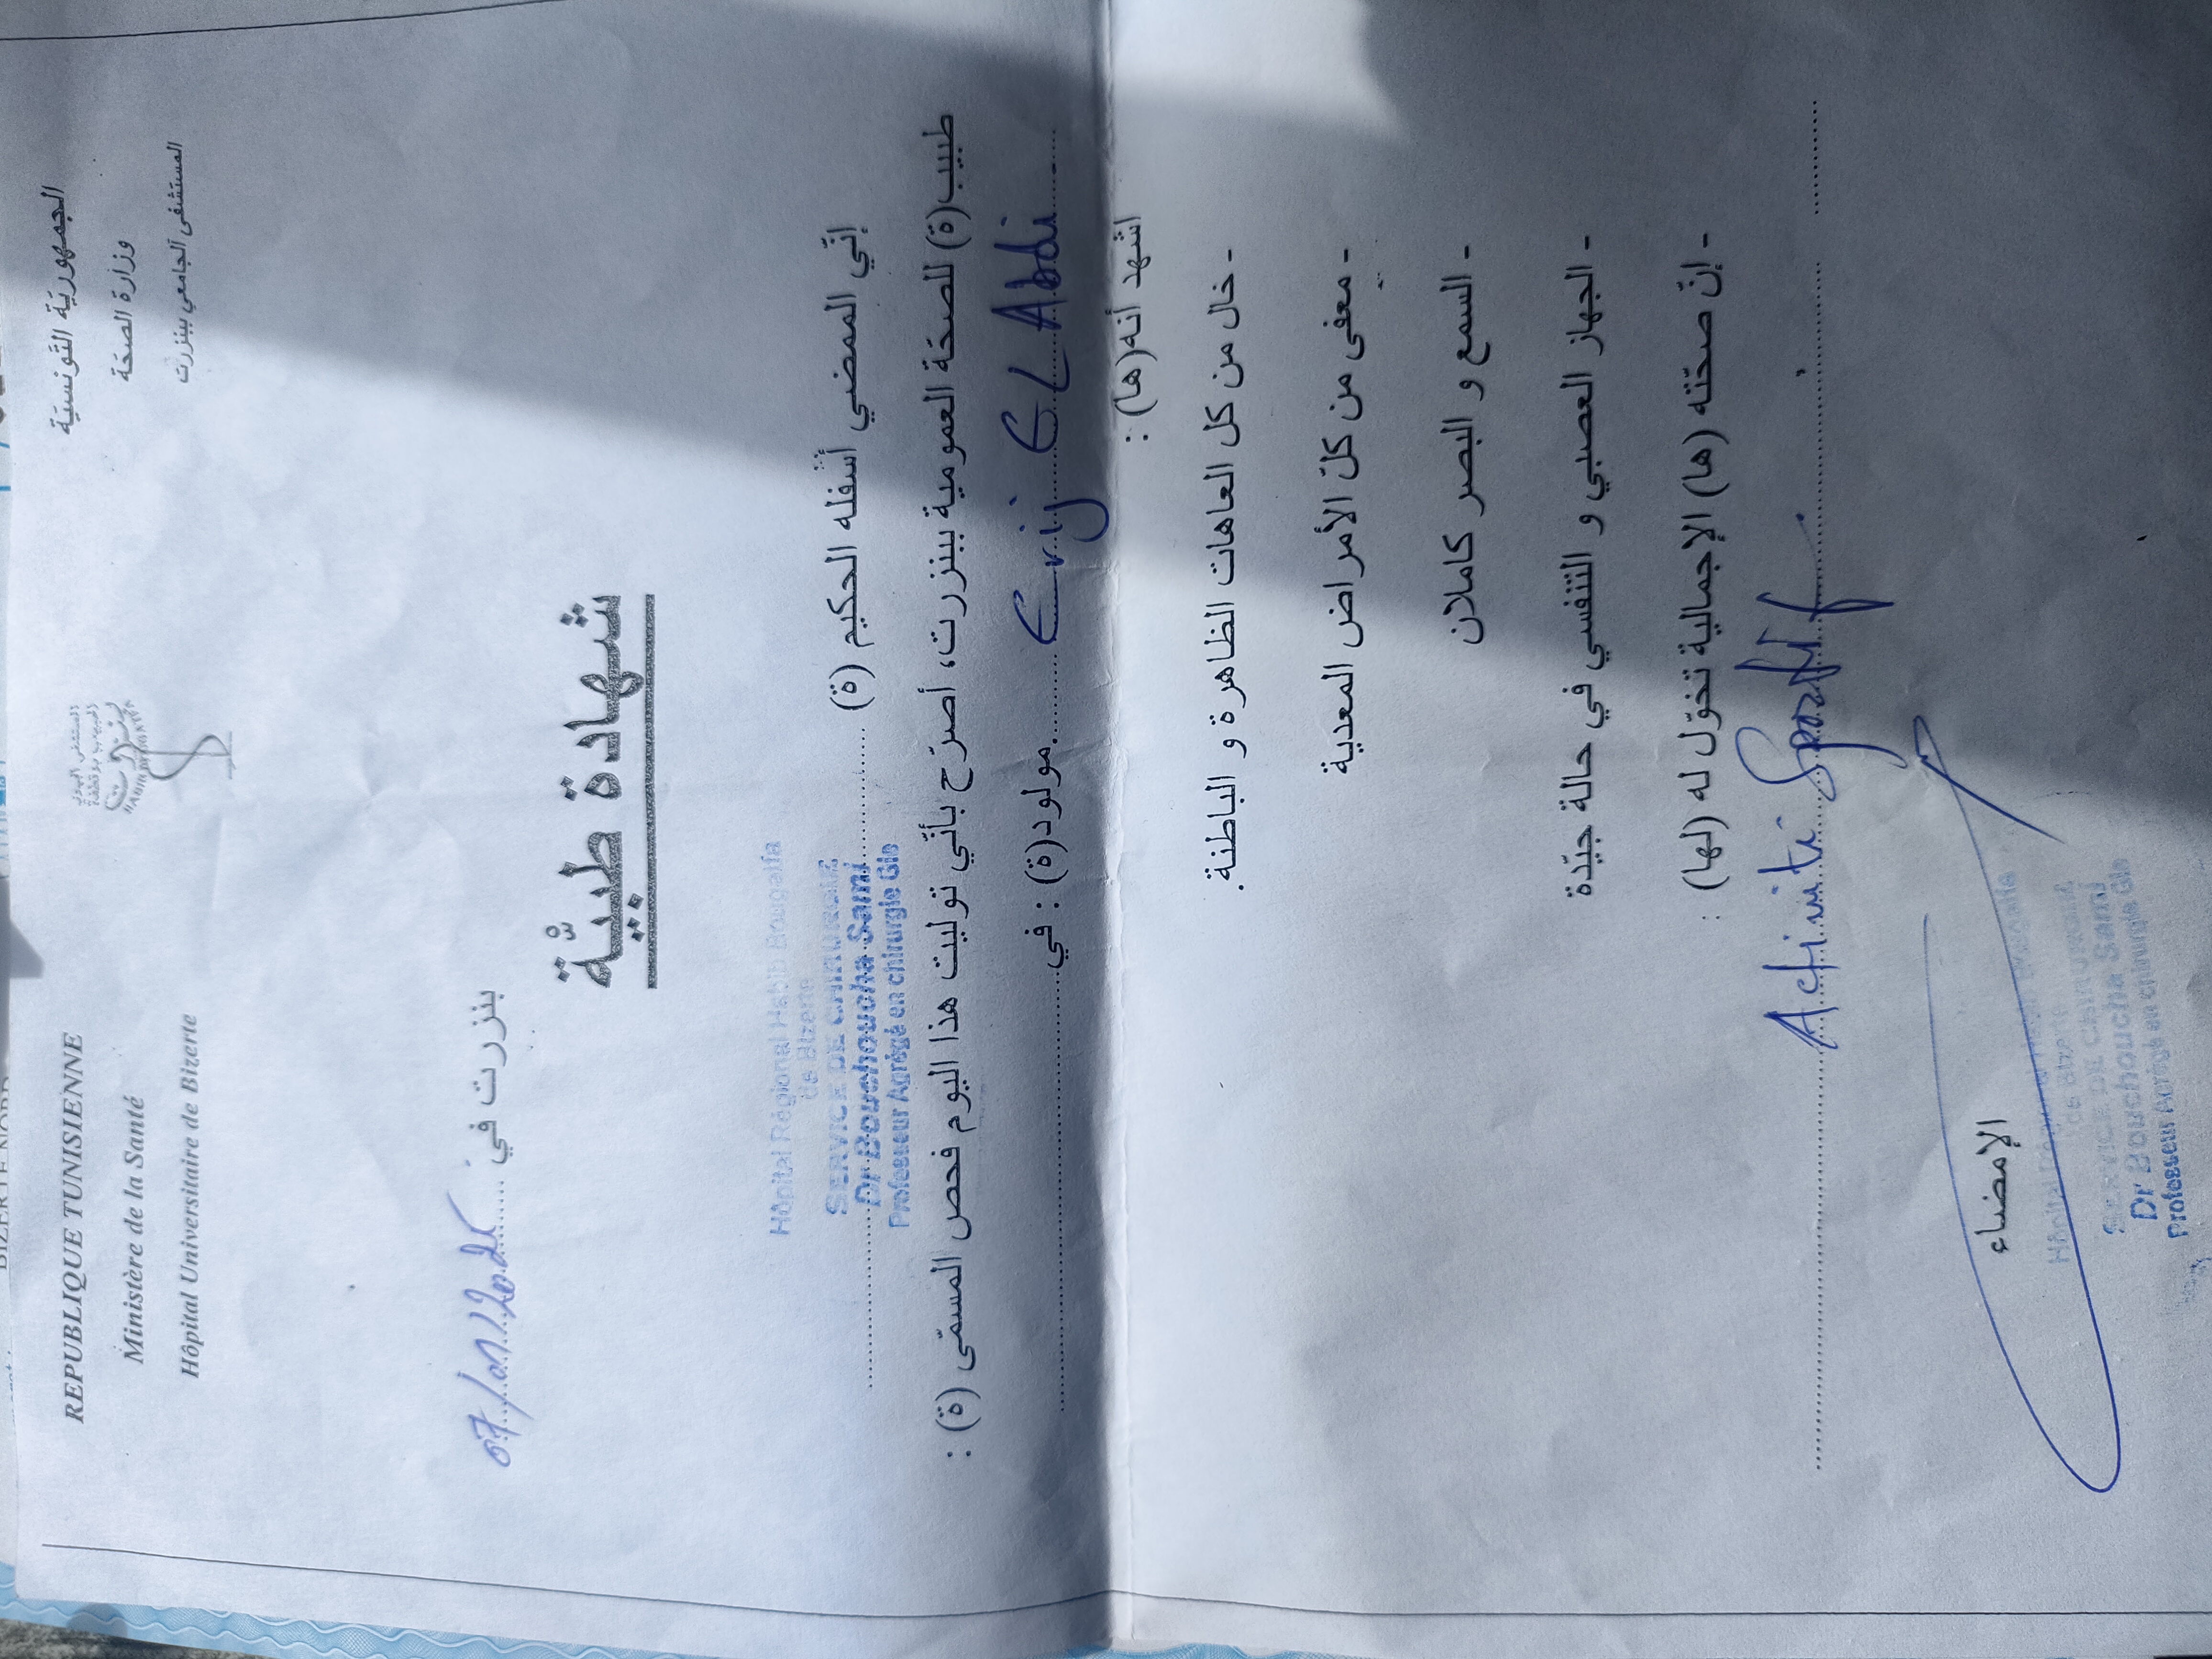 REPUBLIQUE TUNISIENNE
Ministère de la Santé
Hôpital Universitaire de Bizerte
المستشفى الجهوي
الحبيب بوقطفة
بنزرت
الجمهورية التونسية
وزارة الصحة
المستشفى الجامعي ببنزرت
بنزرت في
شهادة طبيّة
إنّي الممضي أسفله الحكيم (ة)
Hôpital Régional Habib Bougatfa
de Bizerte
SERVICE DE CHIRURGIE
Dr Bouchoucha Sami
Professeur Agrégé en chirurgie Gle
طبيب(ة) للصحة العمومية ببنزرت، أصرّح بأنّي توليت هذا اليوم فحص المسمّى (ة) :
Erij El Abdi مولود(ة) : في
اشهد أنه(ها) :
- خال من كل العاهات الظاهرة و الباطنة.
- معفى من كلّ الأمراض المعدية
- السمع و البصر كاملان
- الجهاز العصبي و التنفسي في حالة جيّدة
- إنّ صحّته (ها) الإجمالية تخوّل له (لها) :
الإمضاء
de Bizerte
SERVICE DE CHIRURGIE
Dr Bouchoucha Sami
Professeur Agrégé en chirurgie Gle